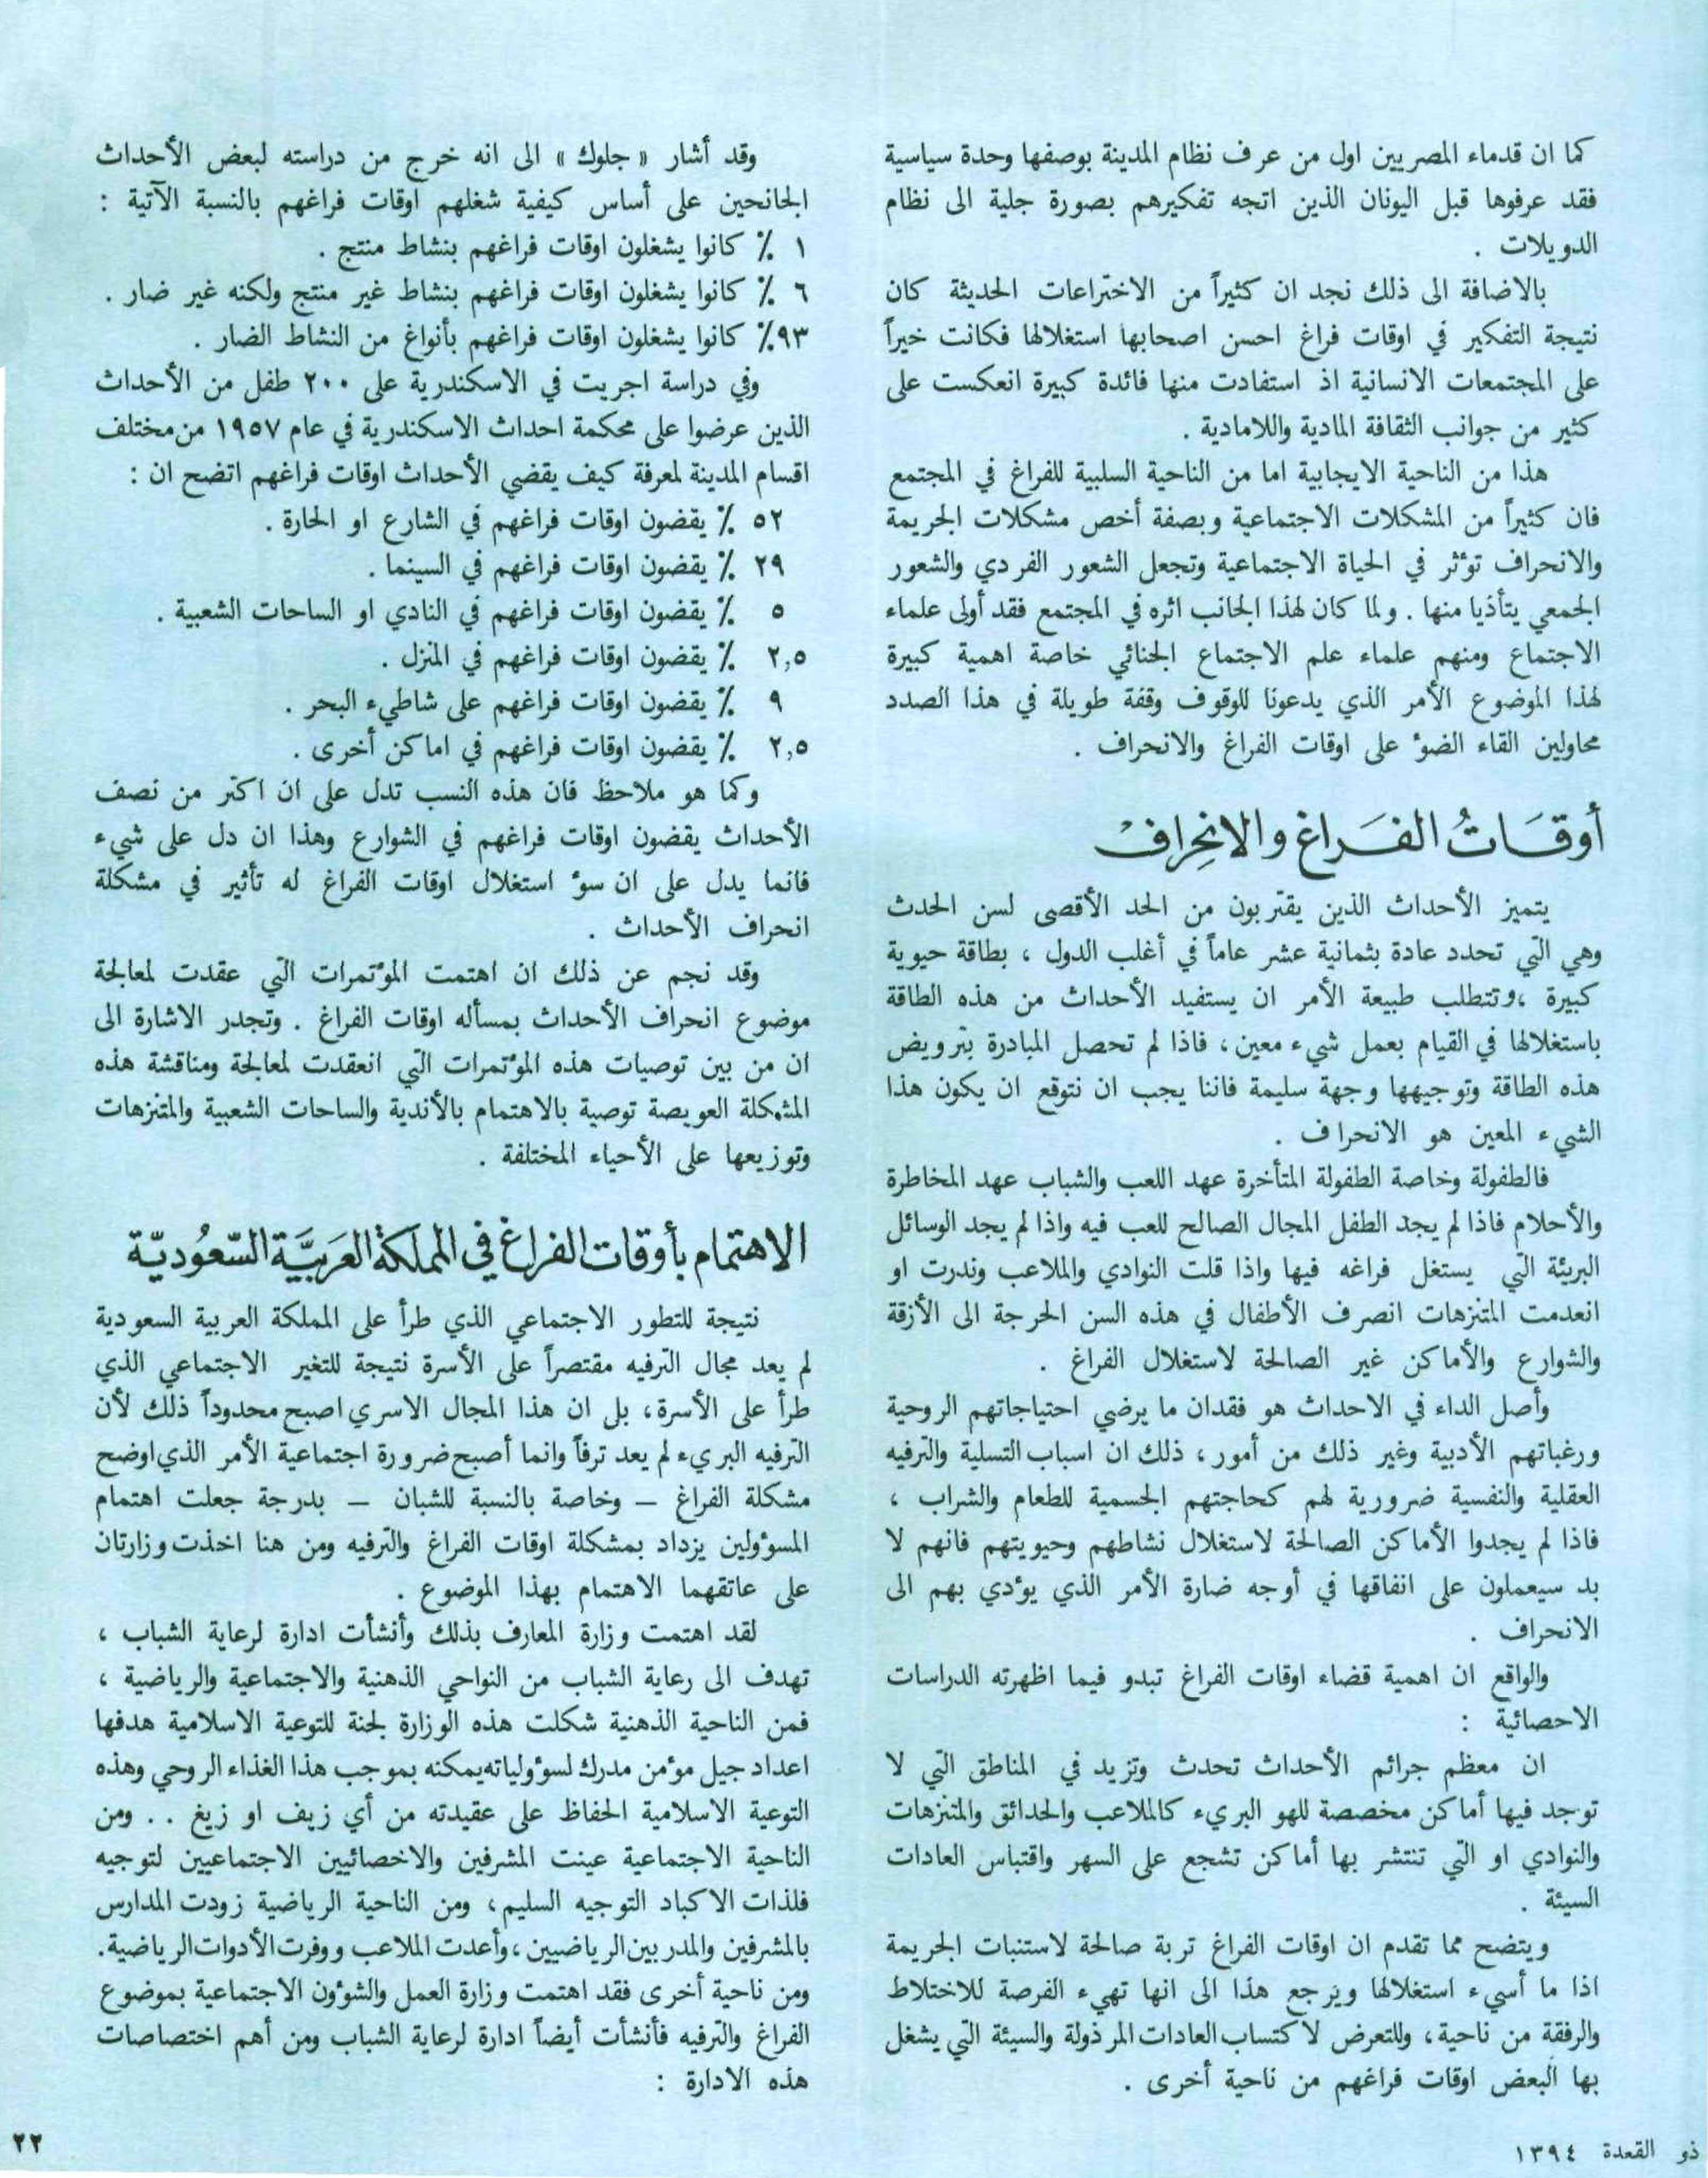 كما ان قدماء المصريين اول من عرف نظام المدينة بوصفها وحدة سياسية
فقد عرفوها قبل اليونان الذين اتجه تفكيرهم بصورة جلية الى نظام
الدويلات .
بالاضافة الى ذلك نجد ان كثيراً من الاختراعات الحديثة كان
نتيجة التفكير في اوقات فراغ احسن اصحابها استغلالها فكانت خيراً
على المجتمعات الانسانية اذ استفادت منها فائدة كبيرة انعكست على
كثير من جوانب الثقافة المادية واللامادية .
هذا من الناحية الايجابية اما من الناحية السلبية للفراغ في المجتمع
فان كثيراً من المشكلات الاجتماعية وبصفة أخص مشكلات الجريمة
والانحراف تؤثر في الحياة الاجتماعية وتجعل الشعور الفردي والشعور
الجمعي يتأذيا منها . ولما كان لهذا الجانب اثره في المجتمع فقد أولى علماء
الاجتماع ومنهم علماء علم الاجتماع الجنائي خاصة اهمية كبيرة
لهذا الموضوع الأمر الذي يدعونا للوقوف وقفة طويلة في هذا الصدد
محاولين القاء الضوء على اوقات الفراغ والانحراف .
أوقَاتُ الفَراغ والانِحرافْ
يتميز الأحداث الذين يقتربون من الحد الأقصى لسن الحدث
وهي التي تحدد عادة بثمانية عشر عاماً في أغلب الدول ، بطاقة حيوية
كبيرة ،وتتطلب طبيعة الأمر ان يستفيد الأحداث من هذه الطاقة
باستغلالها في القيام بعمل شيء معين ، فاذا لم تحصل المبادرة بترويض
هذه الطاقة وتوجيهها وجهة سليمة فاننا يجب ان نتوقع ان يكون هذا
الشيء المعين هو الانحراف .
فالطفولة وخاصة الطفولة المتأخرة عهد اللعب والشباب عهد المخاطرة
والأحلام فاذا لم يجد الطفل المجال الصالح للعب فيه واذا لم يجد الوسائل
البريئة التي يستغل فراغه فيها واذا قلت النوادي والملاعب وندرت او
انعدمت المتنزهات انصرف الأطفال في هذه السن الحرجة الى الأزقة
والشوارع والأماكن غير الصالحة لاستغلال الفراغ .
وأصل الداء في الاحداث هو فقدان ما يرضي احتياجاتهم الروحية
ورغباتهم الأدبية وغير ذلك من أمور ، ذلك ان اسباب التسلية والترفيه
العقلية والنفسية ضرورية لهم كحاجتهم الجسمية للطعام والشراب ،
فاذا لم يجدوا الأماكن الصالحة لاستغلال نشاطهم وحيويتهم فانهم لا
بد سيعملون على انفاقها في أوجه ضارة الأمر الذي يؤدي بهم الى
الانحراف .
والواقع ان اهمية قضاء اوقات الفراغ تبدو فيما اظهرته الدراسات
الاحصائية :
ان معظم جرائم الأحداث تحدث وتزيد في المناطق التي لا
توجد فيها أماكن مخصصة للهو البريء كالملاعب والحدائق والمتنزهات
والنوادي او التي تنتشر بها أماكن تشجع على السهر واقتباس العادات
السيئة .
ويتضح مما تقدم ان اوقات الفراغ تربة صالحة لاستنبات الجريمة
اذا ما أسيء استغلالها ويرجع هذا الى انها تهيء الفرصة للاختلاط
والرفقة من ناحية ، وللتعرض لاكتساب العادات المرذولة والسيئة التي يشغل
بها البعض اوقات فراغهم من ناحية أخرى .
وقد أشار « جلوك » الى انه خرج من دراسته لبعض الأحداث
الجانحين على أساس كيفية شغلهم اوقات فراغهم بالنسبة الآتية :
١ ٪ كانوا يشغلون اوقات فراغهم بنشاط منتج .
٦ ٪ كانوا يشغلون اوقات فراغهم بنشاط غير منتج ولكنه غير ضار .
٩٣٪ كانوا يشغلون اوقات فراغهم بأنواغ من النشاط الضار .
وفي دراسة اجريت في الاسكندرية على ٢٠٠ طفل من الأحداث
الذين عرضوا على محكمة احداث الاسكندرية في عام ١٩٥٧ من مختلف
اقسام المدينة لمعرفة كيف يقضي الأحداث اوقات فراغهم اتضح ان :
٥٢ ٪ يقضون اوقات فراغهم في الشارع او الحارة .
٢٩ ٪ يقضون اوقات فراغهم في السينما .
٥ ٪ يقضون اوقات فراغهم في النادي او الساحات الشعبية .
٢,٥ ٪ يقضون اوقات فراغهم في المنزل .
٩ ٪ يقضون اوقات فراغهم على شاطيء البحر .
٢,٥ ٪ يقضون اوقات فراغهم في اماكن أخرى .
وكما هو ملاحظ فان هذه النسب تدل على ان اكثر من نصف
الأحداث يقضون اوقات فراغهم في الشوارع وهذا ان دل على شيء
فانما يدل على ان سوء استغلال اوقات الفراغ له تأثير في مشكلة
انحراف الأحداث .
وقد نجم عن ذلك ان اهتمت المؤتمرات التي عقدت لمعالجة
موضوع انحراف الأحداث بمسأله اوقات الفراغ . وتجدر الاشارة الى
ان من بين توصيات هذه المؤتمرات التي انعقدت لمعالجة ومناقشة هذه
المشكلة العويصة توصية بالاهتمام بالأندية والساحات الشعبية والمتنزهات
وتوزيعها على الأحياء المختلفة .
الاهتمام بأوقات الفراغ في المملكة العَربيَّة السّعُوديّة
نتيجة للتطور الاجتماعي الذي طرأ على المملكة العربية السعودية
لم يعد مجال الترفيه مقتصراً على الأسرة نتيجة للتغير الاجتماعي الذي
طرأ على الأسرة ، بل ان هذا المجال الاسري اصبح محدوداً ذلك لأن
الترفيه البريء لم يعد ترفاً وانما أصبح ضرورة اجتماعية الأمر الذي اوضح
مشكلة الفراغ – وخاصة بالنسبة للشبان – بدرجة جعلت اهتمام
المسؤولين يزداد بمشكلة اوقات الفراغ والترفيه ومن هنا اخذت وزارتان
على عاتقهما الاهتمام بهذا الموضوع .
لقد اهتمت وزارة المعارف بذلك وأنشأت ادارة لرعاية الشباب ،
تهدف الى رعاية الشباب من النواحي الذهنية والاجتماعية والرياضية ،
فمن الناحية الذهنية شكلت هذه الوزارة لجنة للتوعية الاسلامية هدفها
اعداد جيل مؤمن مدرك لسؤولياته يمكنه بموجب هذا الغذاء الروحي وهذه
التوعية الاسلامية الحفاظ على عقيدته من أي زيف او زيغ . . ومن
الناحية الاجتماعية عينت المشرفين والاخصائيين الاجتماعيين لتوجيه
فلذات الاكباد التوجيه السليم ، ومن الناحية الرياضية زودت المدارس
بالمشرفين والمدربين الرياضيين ، وأعدت الملاعب ووفرت الأدوات الرياضية.
ومن ناحية أخرى فقد اهتمت وزارة العمل والشؤون الاجتماعية بموضوع
الفراغ والترفيه فأنشأت أيضاً ادارة لرعاية الشباب ومن أهم اختصاصات
هذه الادارة :
ذو القعدة ١٣٩٤
٢٢